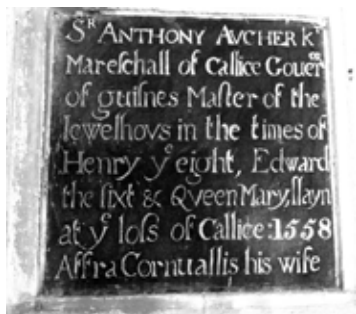 Sʳ ANTHONY AVCHER kᵗ
Mareſchall of Callice Goueʳ
of guiſnes Maſter of the
Iewelhovs in the times of
Henry yᵉ eight, Edward
the ſixt & QVeen Mary, ſlayn
at yᵉ loſs of Callice: 1558
Affra Cornuallis his wife